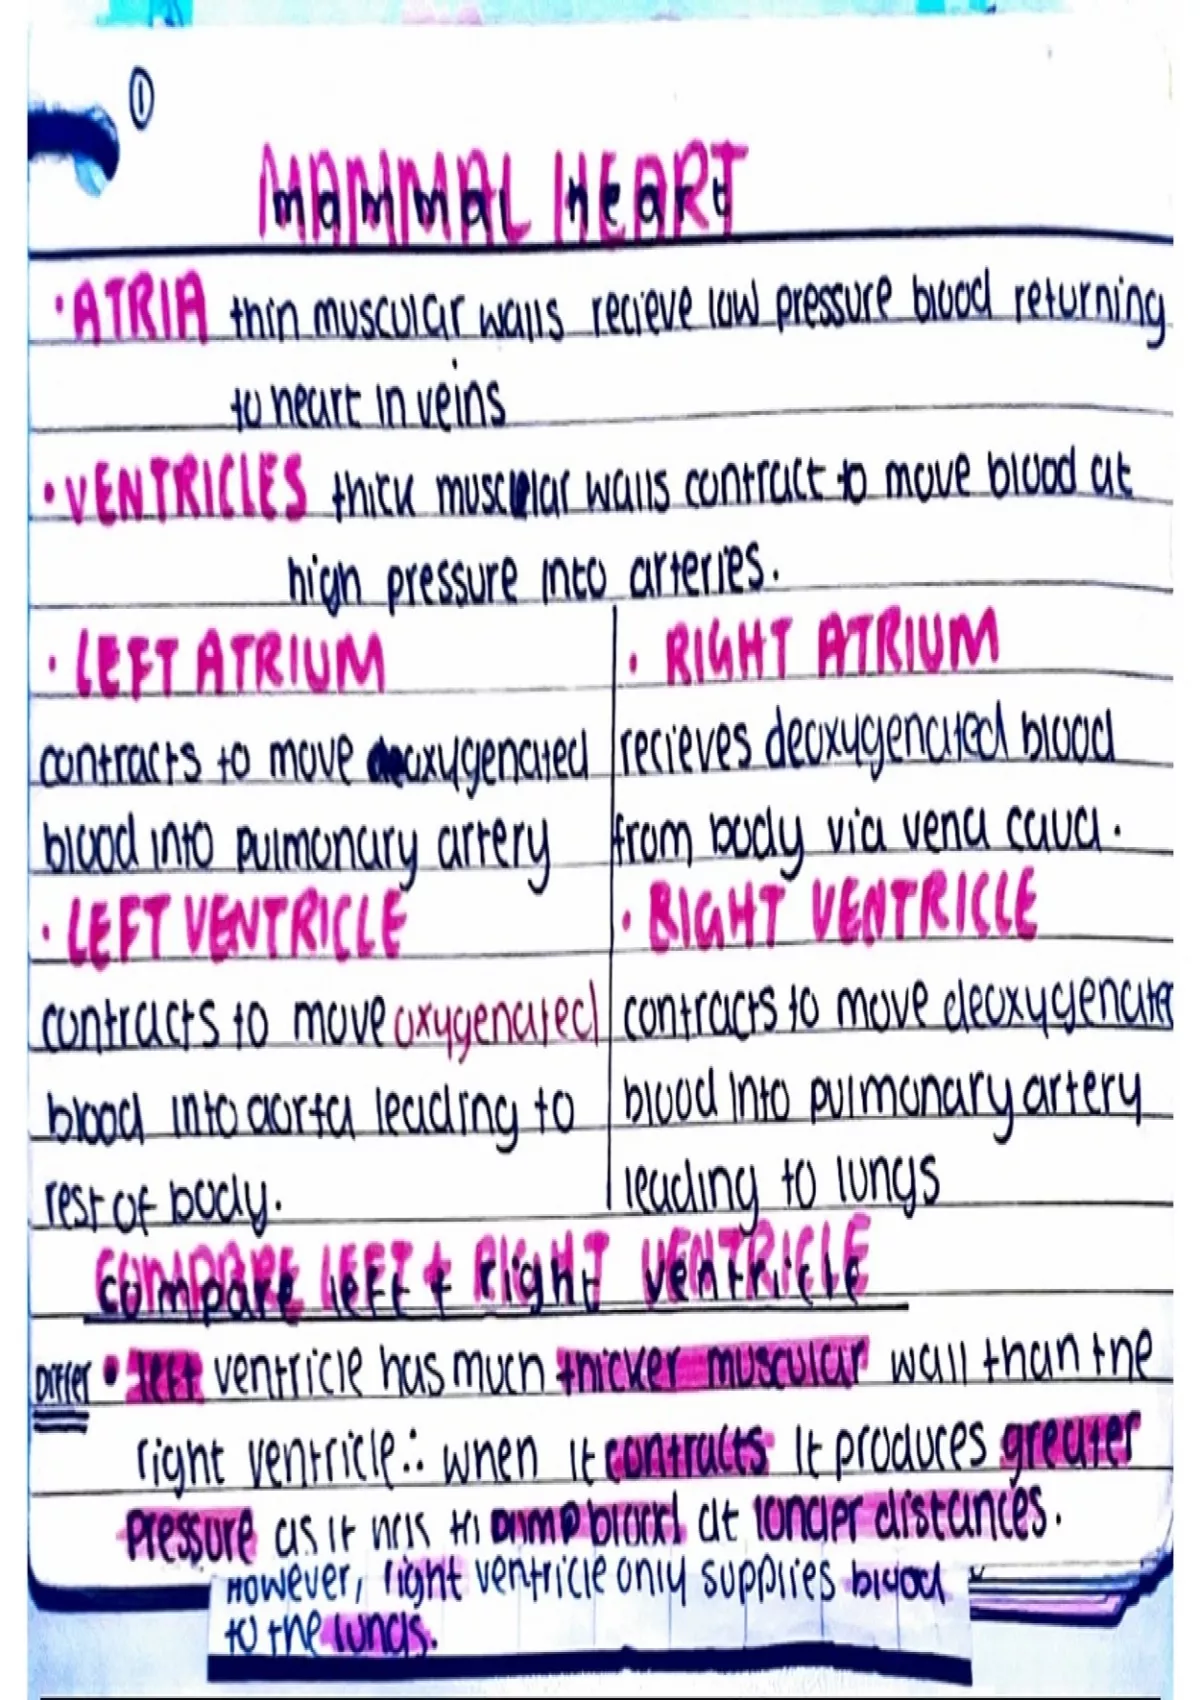 ①
MAMMAL HEART
• ATRIA thin muscular walls recieve low pressure blood returning
to heart in veins
• VENTRICLES thick muscular walls contract to move blood at
high pressure into arteries.
• LEFT ATRIUM
contracts to move deoxygenated
blood into pulmonary artery
• RIGHT ATRIUM
recieves deoxygenated blood
from body via vena cava.
• LEFT VENTRICLE
contracts to move oxygenated
blood into aorta leading to
rest of body.
• RIGHT VENTRICLE
contracts to move deoxygenated
blood into pulmonary artery
leading to lungs
COMPARE LEFT + RIGHT VENTRICLE
Differ • left ventricle has much thicker muscular wall than the
right ventricle ∴ when it contracts it produces greater
pressure as it has to pump blood at longer distances.
However, right ventricle only supplies blood
to the lungs.